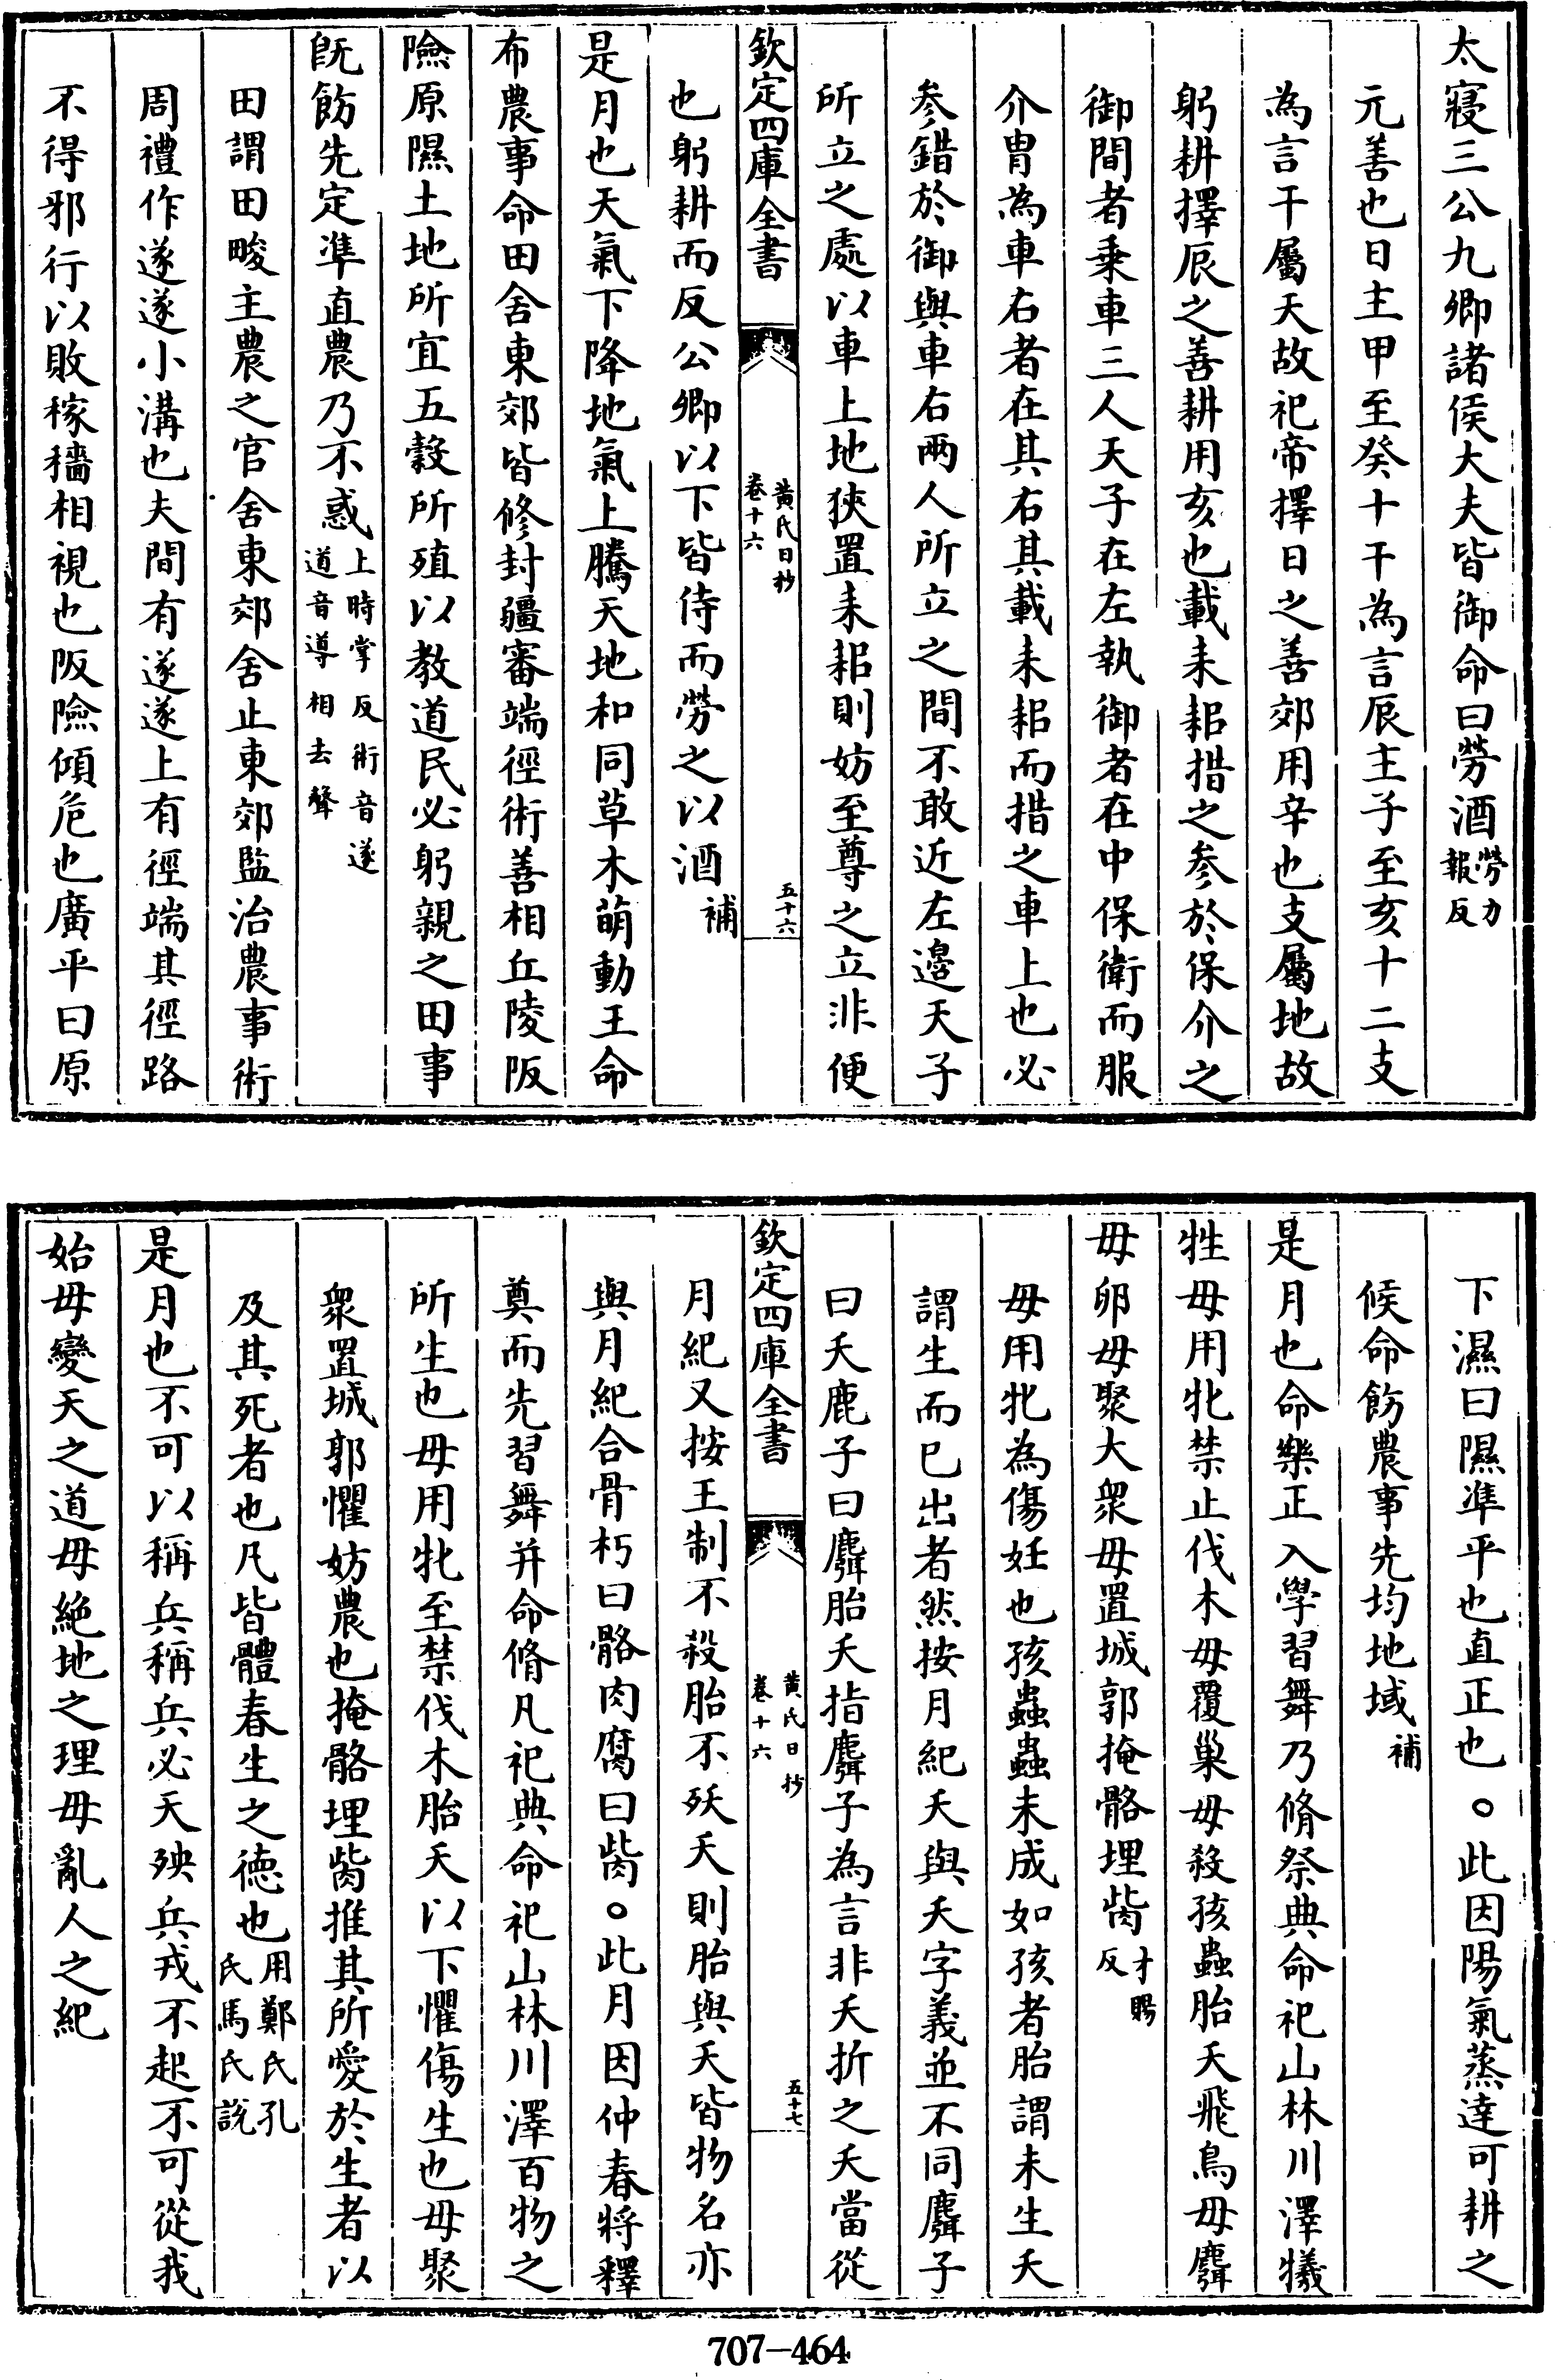 太寢三公九卿諸侯大夫皆御命曰勞酒勞力報反
元善也日主甲至癸十干為言辰主子至亥十二支
為言干屬天故祀帝擇日之善郊用辛也支屬地故
躬耕擇辰之善耕用亥也載耒耜措之参於保介之
御間者乗車三人天子在左執御者在中保衛而服
介胄為車右者在其右其載耒耜而措之車上也必
参錯於御與車右兩人所立之間不敢近左邉天子
所立之處以車上地狹置耒耜則妨至尊之立非便
欽定四庫全書
黄氏日抄
卷十六
五十六
也躬耕而反公卿以下皆侍而勞之以酒補
是月也天氣下降地氣上騰天地和同草木萌動王命
布農事命田舍東郊皆修封疆審端徑術善相丘陵阪
險原隰土地所宜五穀所殖以教道民必躬親之田事
既飭先定準直農乃不惑上時掌反術音遂道音導相去聲
田謂田畯主農之官舍東郊舍止東郊監治農事術
周禮作遂遂小溝也夫間有遂遂上有徑端其徑路
不得邪行以敗稼穡相視也阪險傾危也廣平曰原
下濕曰隰凖平也直正也○此因陽氣蒸達可耕之
候命飭農事先均地域補
是月也命樂正入學習舞乃脩祭典命祀山林川澤犧
牲毋用牝禁止伐木毋覆巢毋殺孩蟲胎夭飛鳥毋麛
毋卵毋聚大衆毋置城郭掩骼埋胔才賜反
毋用牝為傷妊也孩蟲蟲未成如孩者胎謂未生夭
謂生而已出者然按月紀夭與夭字義並不同麛子
曰夭鹿子曰麛胎夭指麛子為言非夭折之夭當從
欽定四庫全書
黄氏日抄
卷十六
五十七
月紀又按王制不殺胎不殀夭則胎與夭皆物名亦
與月紀合骨朽曰骼肉腐曰胔○此月因仲春將釋
奠而先習舞并命脩凡祀典命祀山林川澤百物之
所生也毋用牝至禁伐木胎夭以下懼傷生也毋聚
衆置城郭懼妨農也掩骼埋胔推其所愛於生者以
及其死者也凡皆體春生之德也用鄭氏孔氏馬氏説
是月也不可以稱兵稱兵必天殃兵戎不起不可從我
始毋變天之道毋絶地之理毋亂人之紀
707-464